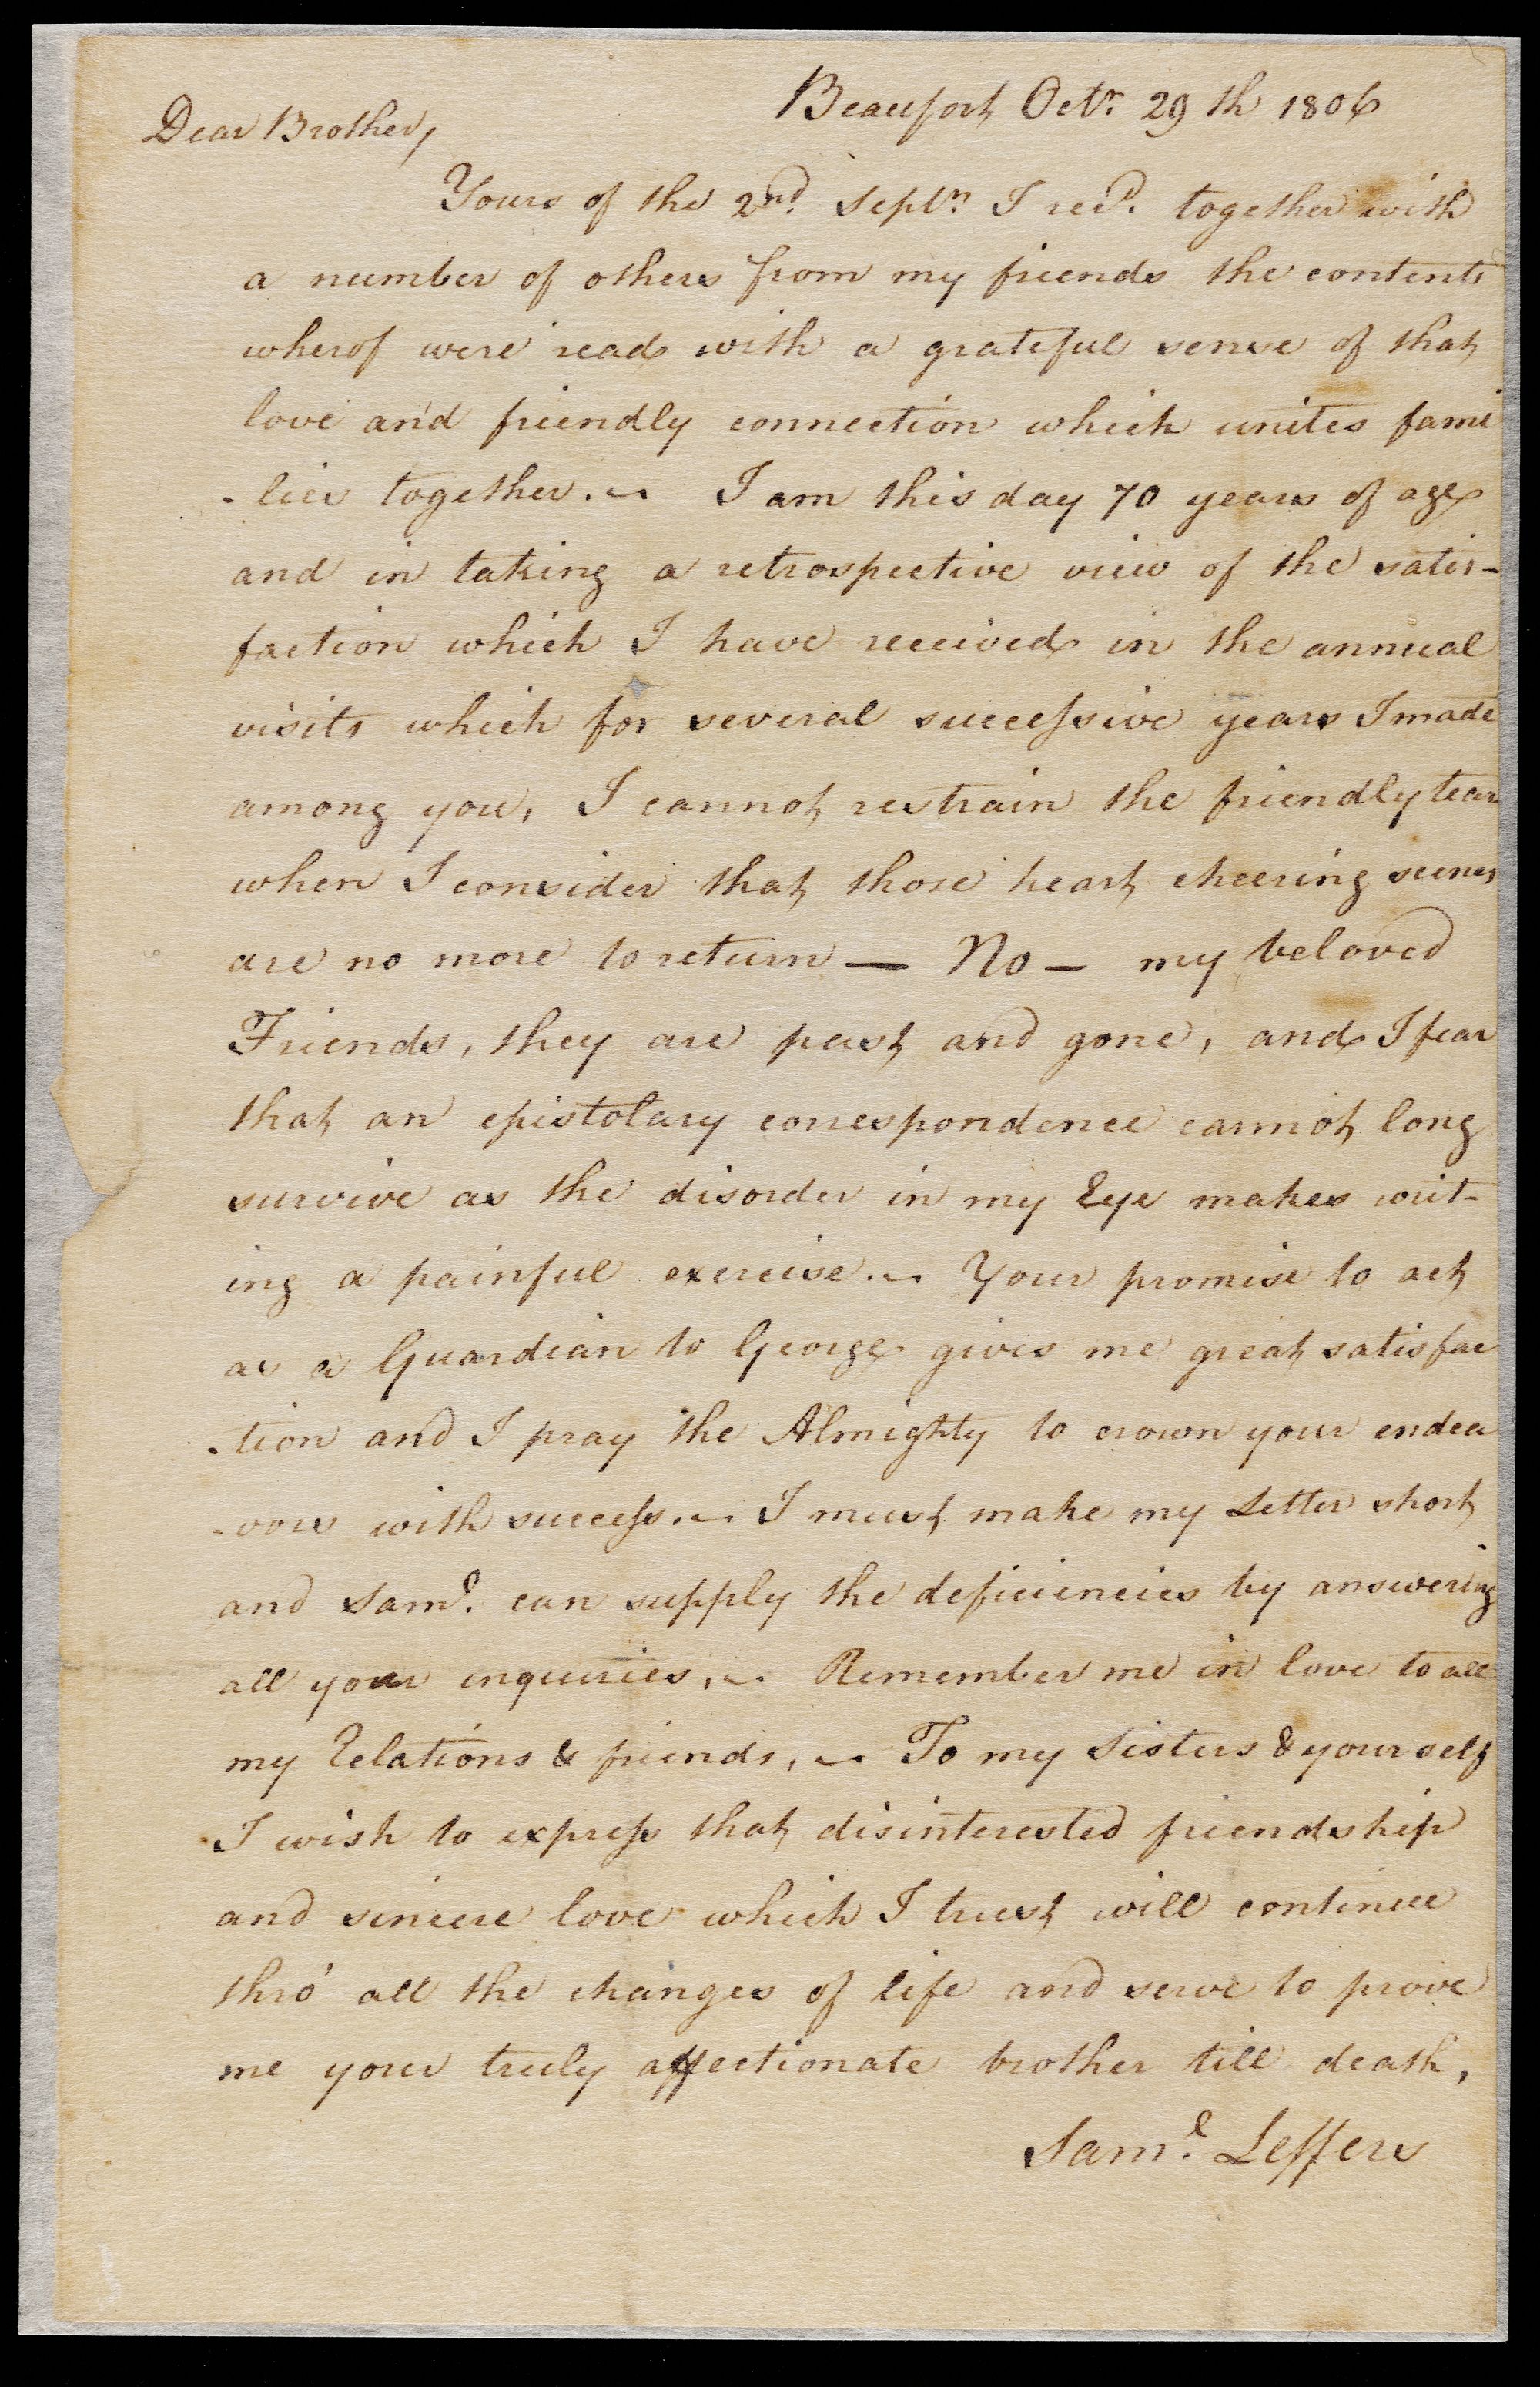 Beaufort Octr. 29th 1806
Dear Brother,
Yours of the 2nd. Septr. I recd. together with
a number of others from my friends the contents
wherof were read with a grateful sense of that
love and friendly connection which unites fami
-lies together. ~ I am this day 70 years of age
and in taking a retrospective view of the satis-
faction which I have received in the annual
visits which for several successive years I made
among you, I cannot restrain the friendly tear
when I consider that those heart cheering scenes
are no more to return — No — my beloved
Friends, they are past and gone, and I fear
that an epistolary correspondence cannot long
survive as the disorder in my Eye makes writ-
ing a painful exercise. ~ Your promise to act
as a Guardian to George gives me great satisfac
-tion and I pray the Almighty to crown your endea
-vors with success. ~ I must make my Letter short
and Saml. can supply the deficiencies by answering
all your inquiries, ~ Remember me in love to all
my Relations & friends, ~ To my Sisters & yourself
I wish to express that disinterested friendship
and sincere love which I trust will continue
thro' all the changes of life and serve to prove
me your truly affectionate brother till death,
Saml. Leffers